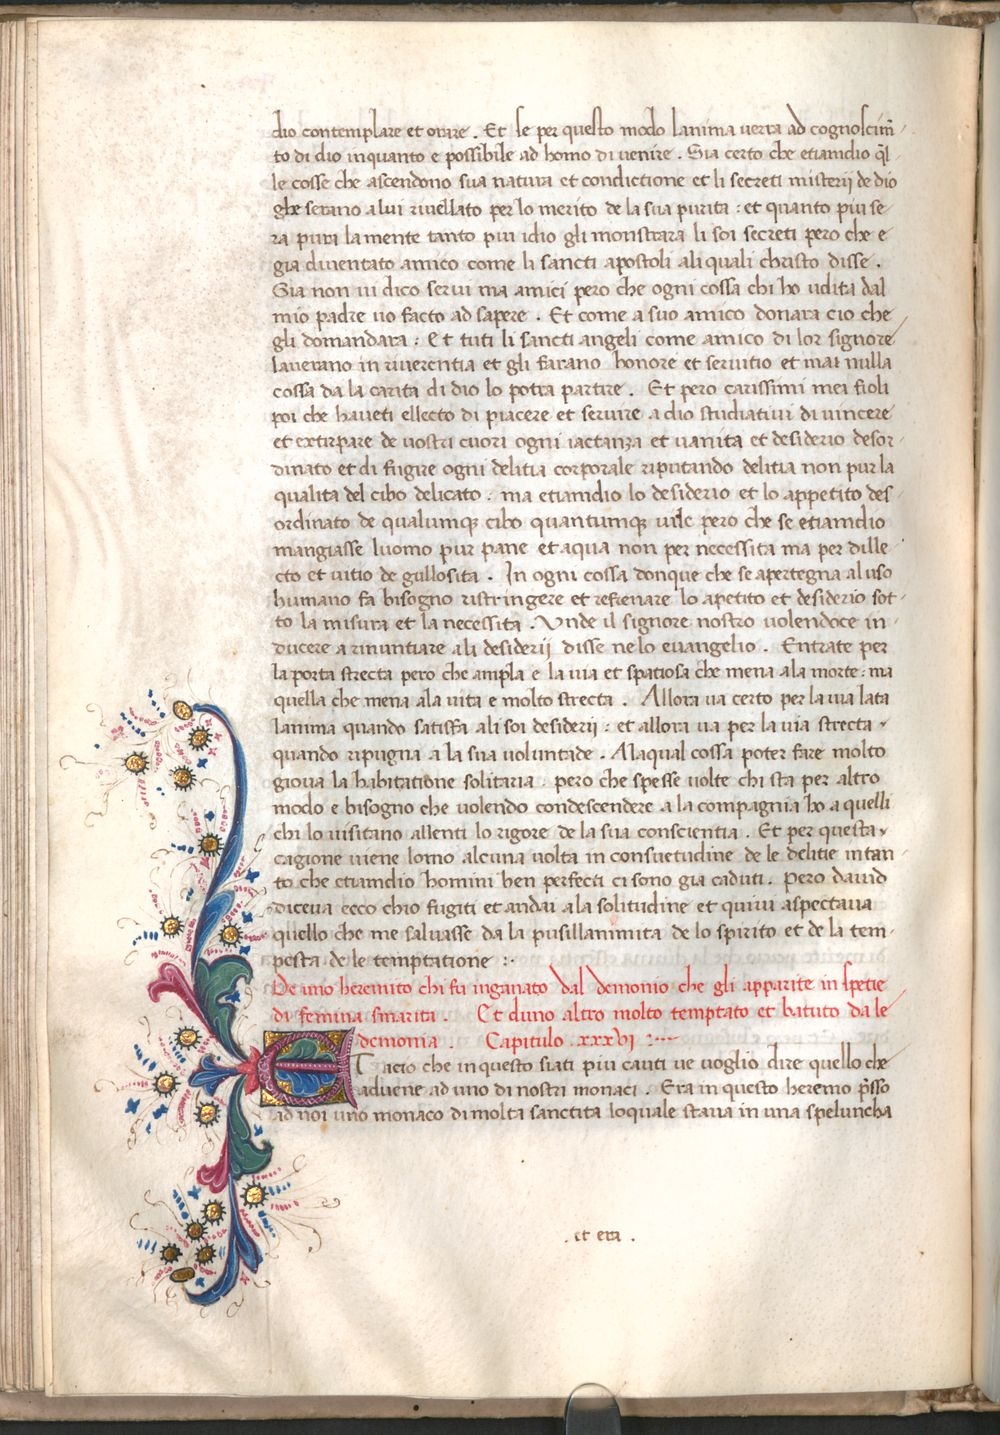 dio contemplare et orare . Et se per questo modo lanima uerra ad cognoscim̄
to di dio inquanto e possibile ad homo di uenire . Sia certo che etiamdio q̄l
le cosse che ascendono sua natura et condictione et li secreti misterij de dio
ghe serano alui riuellato per lo merito de la sua purita : et quanto piu se
ra pura la mente tanto piu idio gli monstrara li soi secreti pero che e
gia diuentato amico come li sancti apostoli ali quali christo disse .
Gia non ui dico serui ma amici pero che ogni cossa chi ho udita dal
mio padre uo facto ad sapere . Et come a suo amico donara cio che
gli domandara : Et tuti li sancti angeli come amico di lor signore
lauerano in riuerentia et gli farano honore et seruitio et mai nulla
cossa da la carita di dio lo potra partire . Et pero carissimi mei fioli
poi che haueti ellecto di piacere et seruire a dio studiatiui di uincere
et extirpare de uostri cuori ogni iactanza et uanita et desiderio desor
dinato et di fugire ogni delitia corporale riputando delitia non pur la
qualita del cibo delicato . ma etiamdio lo desiderio et lo appetito des
ordinato de qualumqꝫ cibo quantumqꝫ uile pero che se etiamdio
mangiasse luomo pur pane et aqua non per necessita ma per dille
cto et uitio de gullosita . In ogni cossa donque che se apertegna al uso
humano fa bisogno ristringere et refrenare lo apetito et desiderio sot
to la misura et la necessita . Unde il signore nostro uolendoce in
ducere a rinuntiare ali desiderij disse ne lo euangelio . Entrate per
la porta strecta pero che ampla e la uia et spatiosa che mena ala morte : ma
quella che mena ala uita e molto strecta . Allora ua certo per la uia lata
lanima quando satisfa ali soi desiderij : et allora ua per la uia strecta
quando ripugna a la sua uoluntade . Alaqual cossa poter fare molto
gioua la habitatione solitaria . pero che spesse uolte chi sta per altro
modo e bisogno che uolendo condescendere a la compagnia ho a quelli
chi lo uisitano allenti lo rigore de la sua conscientia . Et per questa
cagione uiene lomo alcuna uolta in consuetudine de le delitie in tan
to che etiamdio homini ben perfecti ci sono gia caduti . Pero dauid
diceua ecco chio fugiti et andai ala solitudine et quiui aspectaua
quello che me saluasse da la pusillanimita de lo spirito et de la tem
pesta de le temptatione :.
De uno heremito chi fu inganato dal demonio che gli apparite in spetie
di femina smarita . Et duno altro molto temptato et batuto da le
demonia . Capitulo .xxxvi :
Tacio che in questo siati piu cauti ue uoglio dire quello che
aduene ad uno di nostri monaci . Era in questo heremo p̄sso
ad noi uno monaco di molta sanctita loquale staua in una speluncha
. et era .